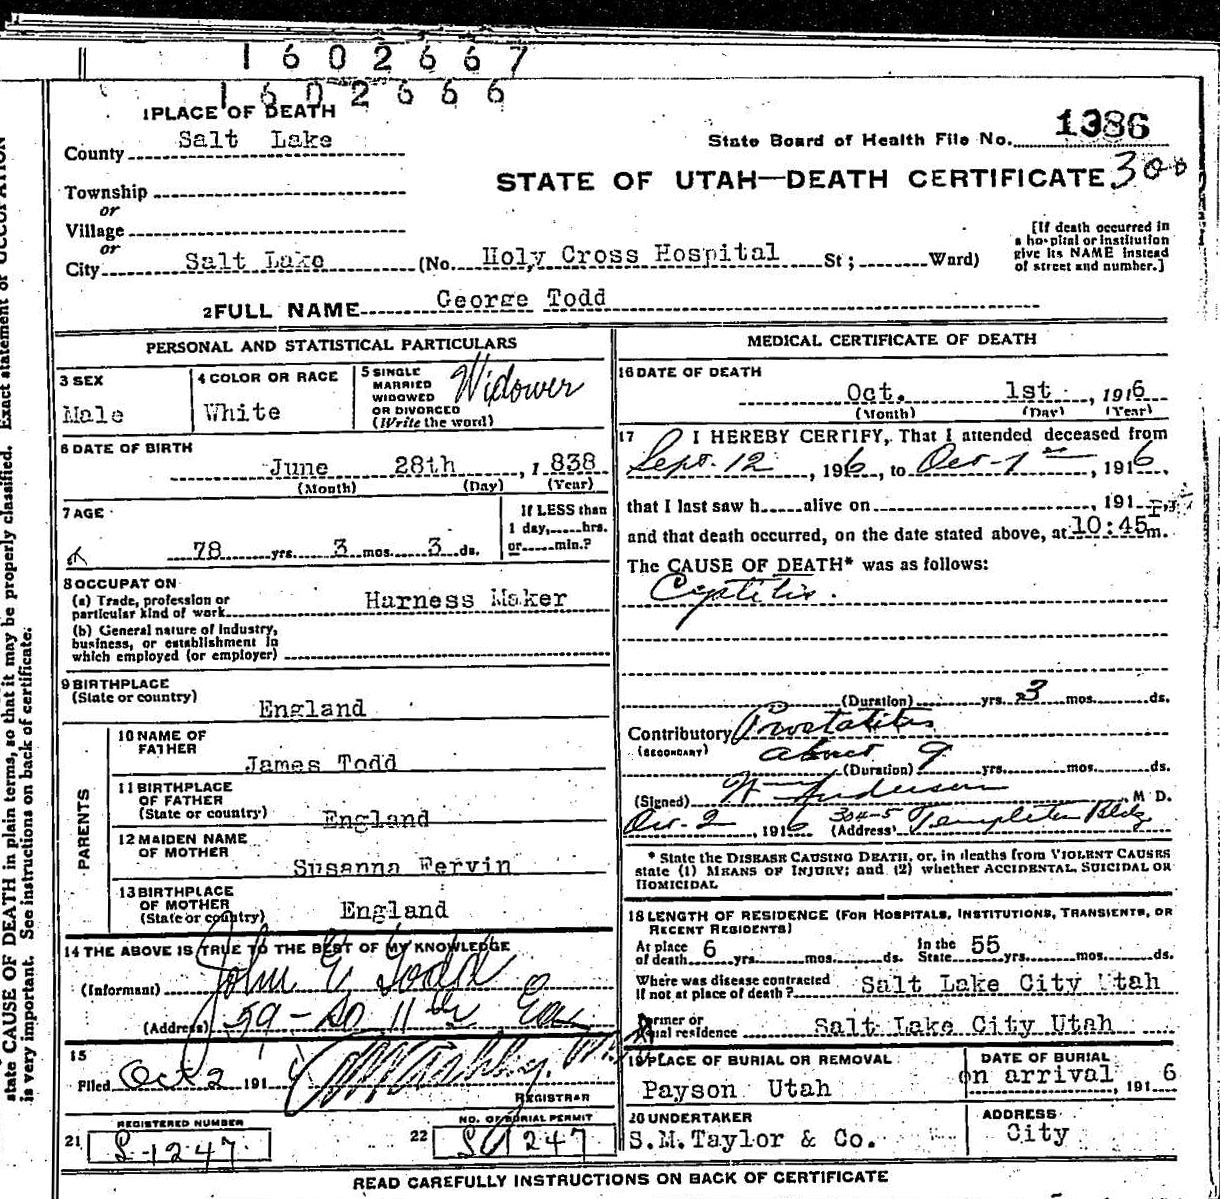 1602667
1602666
1 PLACE OF DEATH
County Salt Lake
State Board of Health File No. 1386
Township
or
STATE OF UTAH—DEATH CERTIFICATE 300
Village
or
City Salt Lake (No. Holy Cross Hospital St; Ward)
[If death occurred in
a hospital or institution
give its NAME instead
of street and number.]
2 FULL NAME George Todd
PERSONAL AND STATISTICAL PARTICULARS
3 SEX
Male
4 COLOR OR RACE
White
5 SINGLE
MARRIED
WIDOWED
OR DIVORCED
(Write the word)
Widower
6 DATE OF BIRTH
June 28th, 1838
(Month) (Day) (Year)
7 AGE
78 yrs. 3 mos. 3 ds.
If LESS than
1 day, hrs.
or min.?
8 OCCUPATION
(a) Trade, profession or
particular kind of work Harness Maker
(b) General nature of industry,
business, or establishment in
which employed (or employer)
9 BIRTHPLACE
(State or country)
England
PARENTS
10 NAME OF
FATHER
James Todd
11 BIRTHPLACE
OF FATHER
(State or country)
England
12 MAIDEN NAME
OF MOTHER
Susanna Fervin
13 BIRTHPLACE
OF MOTHER
(State or country)
England
14 THE ABOVE IS TRUE TO THE BEST OF MY KNOWLEDGE
(Informant) John E Todd
(Address) 59 - So 11th East
15
Filed Oct 2 191
REGISTRAR
REGISTERED NUMBER
21 S-1247
NO. OF BURIAL PERMIT
22 S 1247
MEDICAL CERTIFICATE OF DEATH
16 DATE OF DEATH
Oct. 1st, 1916
(Month) (Day) (Year)
17 I HEREBY CERTIFY, That I attended deceased from
Sept. 12, 1916, to Oct-1st, 1916,
that I last saw h alive on , 191
and that death occurred, on the date stated above, at 10:45 m.
The CAUSE OF DEATH* was as follows:
Cystitis.
(Duration) yrs. 3 mos. ds.
Contributory Prostatitis
(SECONDARY) about 9
(Duration) 9 yrs. mos. ds.
(Signed) W Anderson M D.
Oct-2, 1916 (Address) 304-5 Templeton Bldg
* State the DISEASE CAUSING DEATH, or, in deaths from VIOLENT CAUSES
state (1) MEANS OF INJURY; and (2) whether ACCIDENTAL, SUICIDAL OR
HOMICIDAL
18 LENGTH OF RESIDENCE (FOR HOSPITALS, INSTITUTIONS, TRANSIENTS, OR
RECENT RESIDENTS)
At place
of death 6 yrs. mos. ds.
In the
State 55 yrs. mos. ds.
Where was disease contracted
if not at place of death? Salt Lake City Utah
Former or
usual residence Salt Lake City Utah
19 PLACE OF BURIAL OR REMOVAL
Payson Utah
DATE OF BURIAL
on arrival, 1916
20 UNDERTAKER
S.M.Taylor & Co.
ADDRESS
City
READ CAREFULLY INSTRUCTIONS ON BACK OF CERTIFICATE
state CAUSE OF DEATH in plain terms, so that it may be properly classified. Exact statement of OCCUPATION
is very important. See instructions on back of certificate.